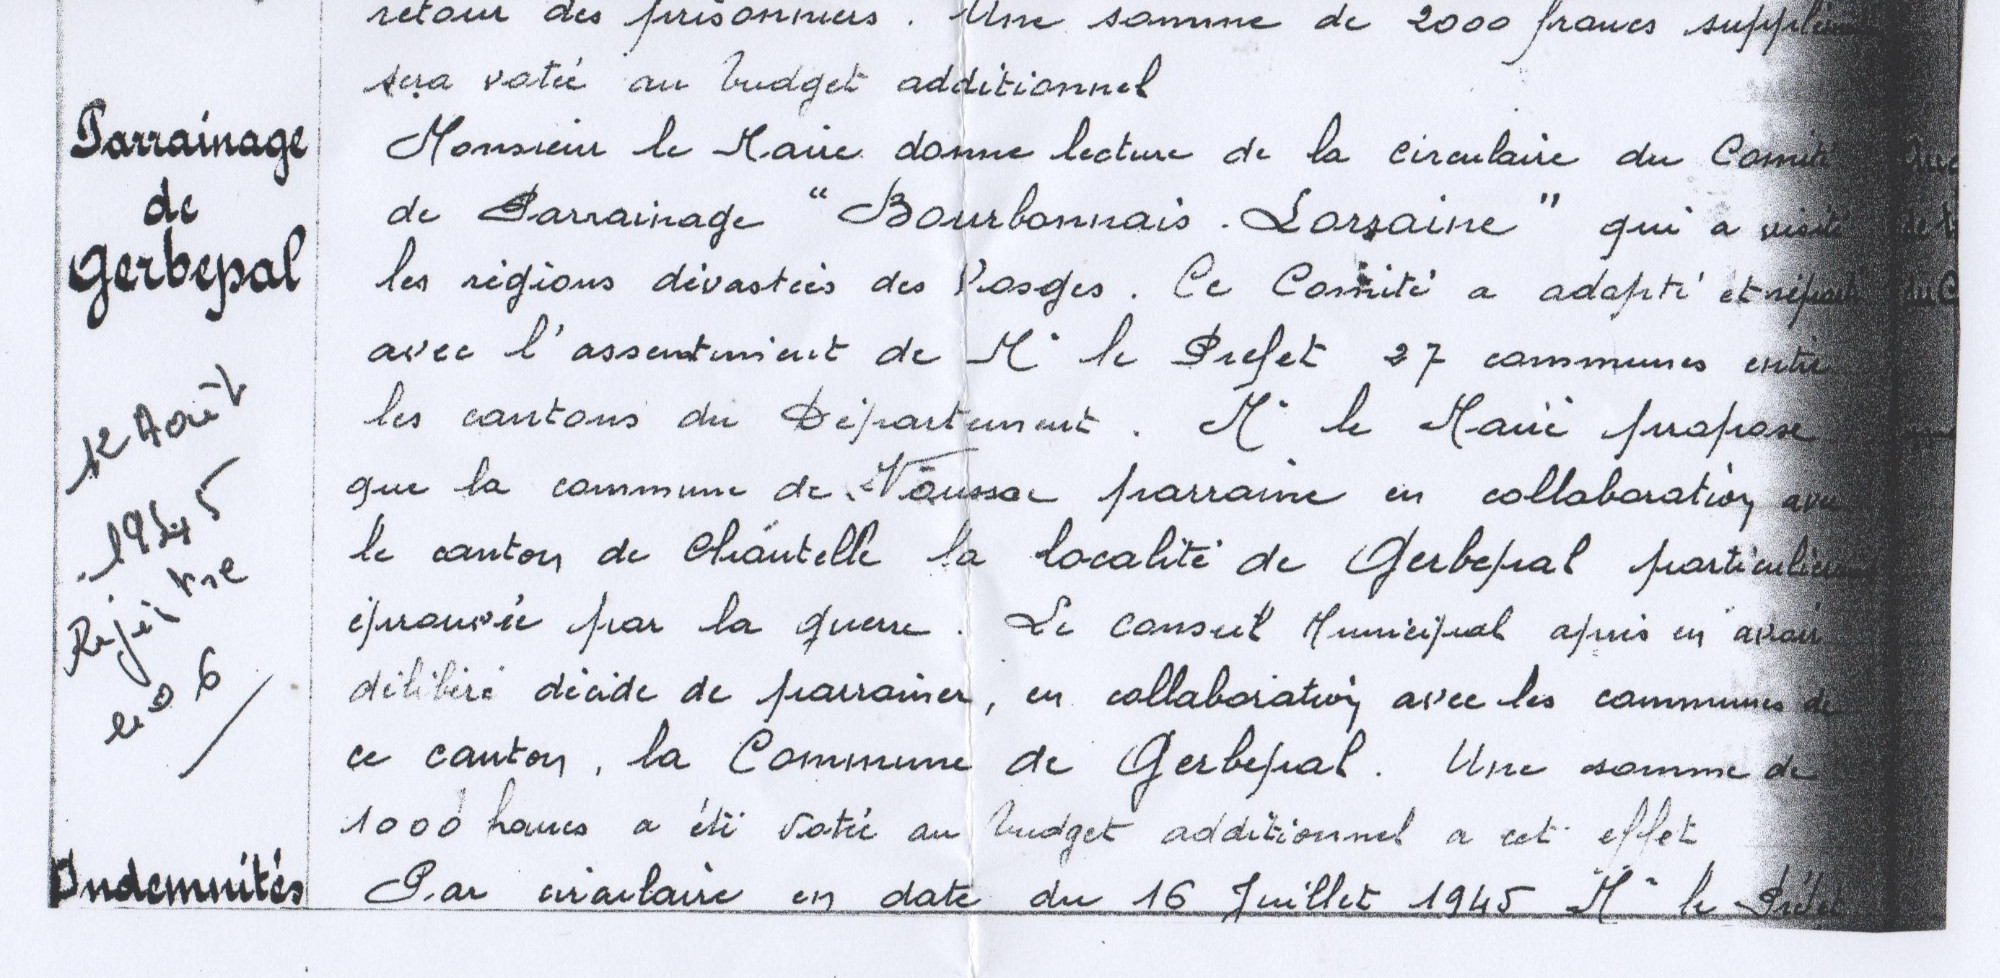 retour des prisonniers. Une somme de 2000 francs
sera votée au budget additionnel
Parrainage
de
Gerbepal
Monsieur le Maire donne lecture de la circulaire du Comité
de Parrainage "Bourbonnais-Lorraine" qui a visité
les régions dévastées des Vosges. Ce Comité a adopté et réparti
avec l'assentiment de Mr le Préfet 27 communes entre
les cantons du Département. Mr le Maire propose
que la commune de Voussac parraine en collaboration avec
le canton de Chantelle la localité de Gerbepal
éprouvée par la guerre. Le conseil Municipal après en avoir
délibéré décide de parrainer, en collaboration avec les communes de
ce canton, la Commune de Gerbepal. Une somme de
1000 francs a été votée au budget additionnel a cet effet
12 Août
1945
6
Indemnités
Par circulaire en date du 16 Juillet 1945 Mr le Préfet